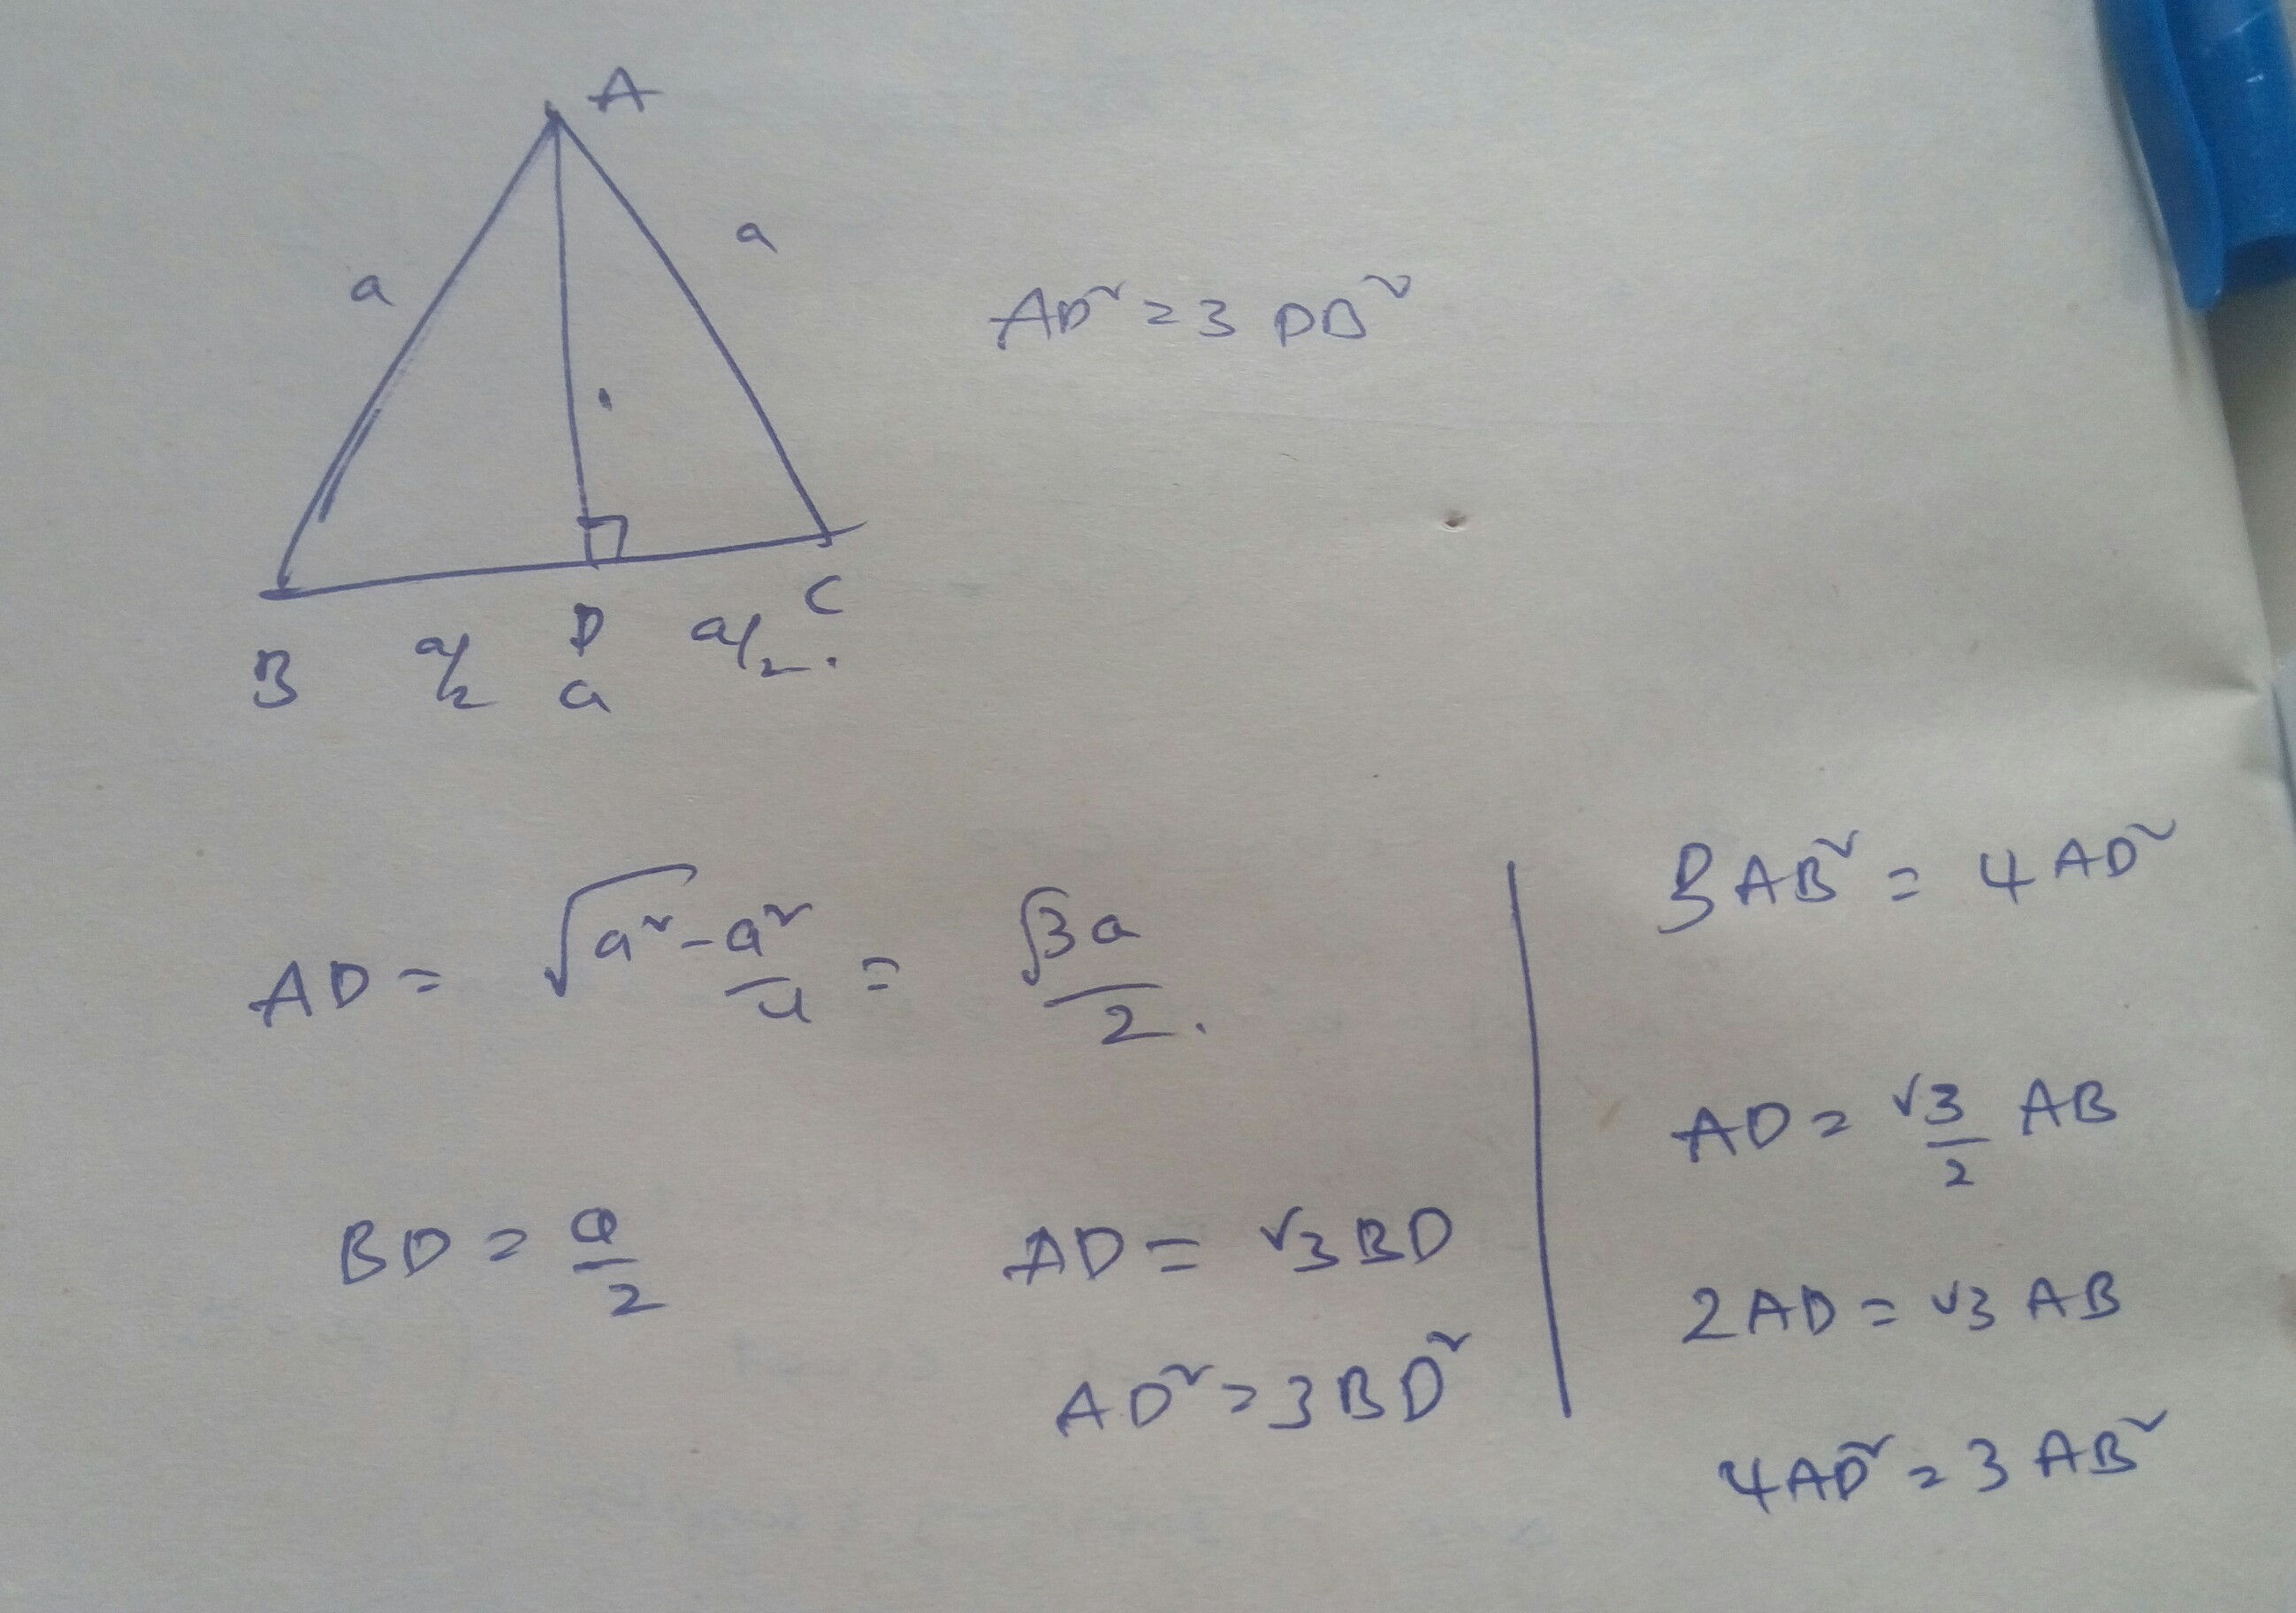 A
a
a
AD² = 3 DB²
B a/2 D a/2 . C
a
AD = √a² - a²/4 = √3a/2 .
BD = a/2
AD = √3 BD
AD² = 3 BD²
3 AB² = 4 AD²
AD = √3/2 AB
2 AD = √3 AB
4 AD² = 3 AB²